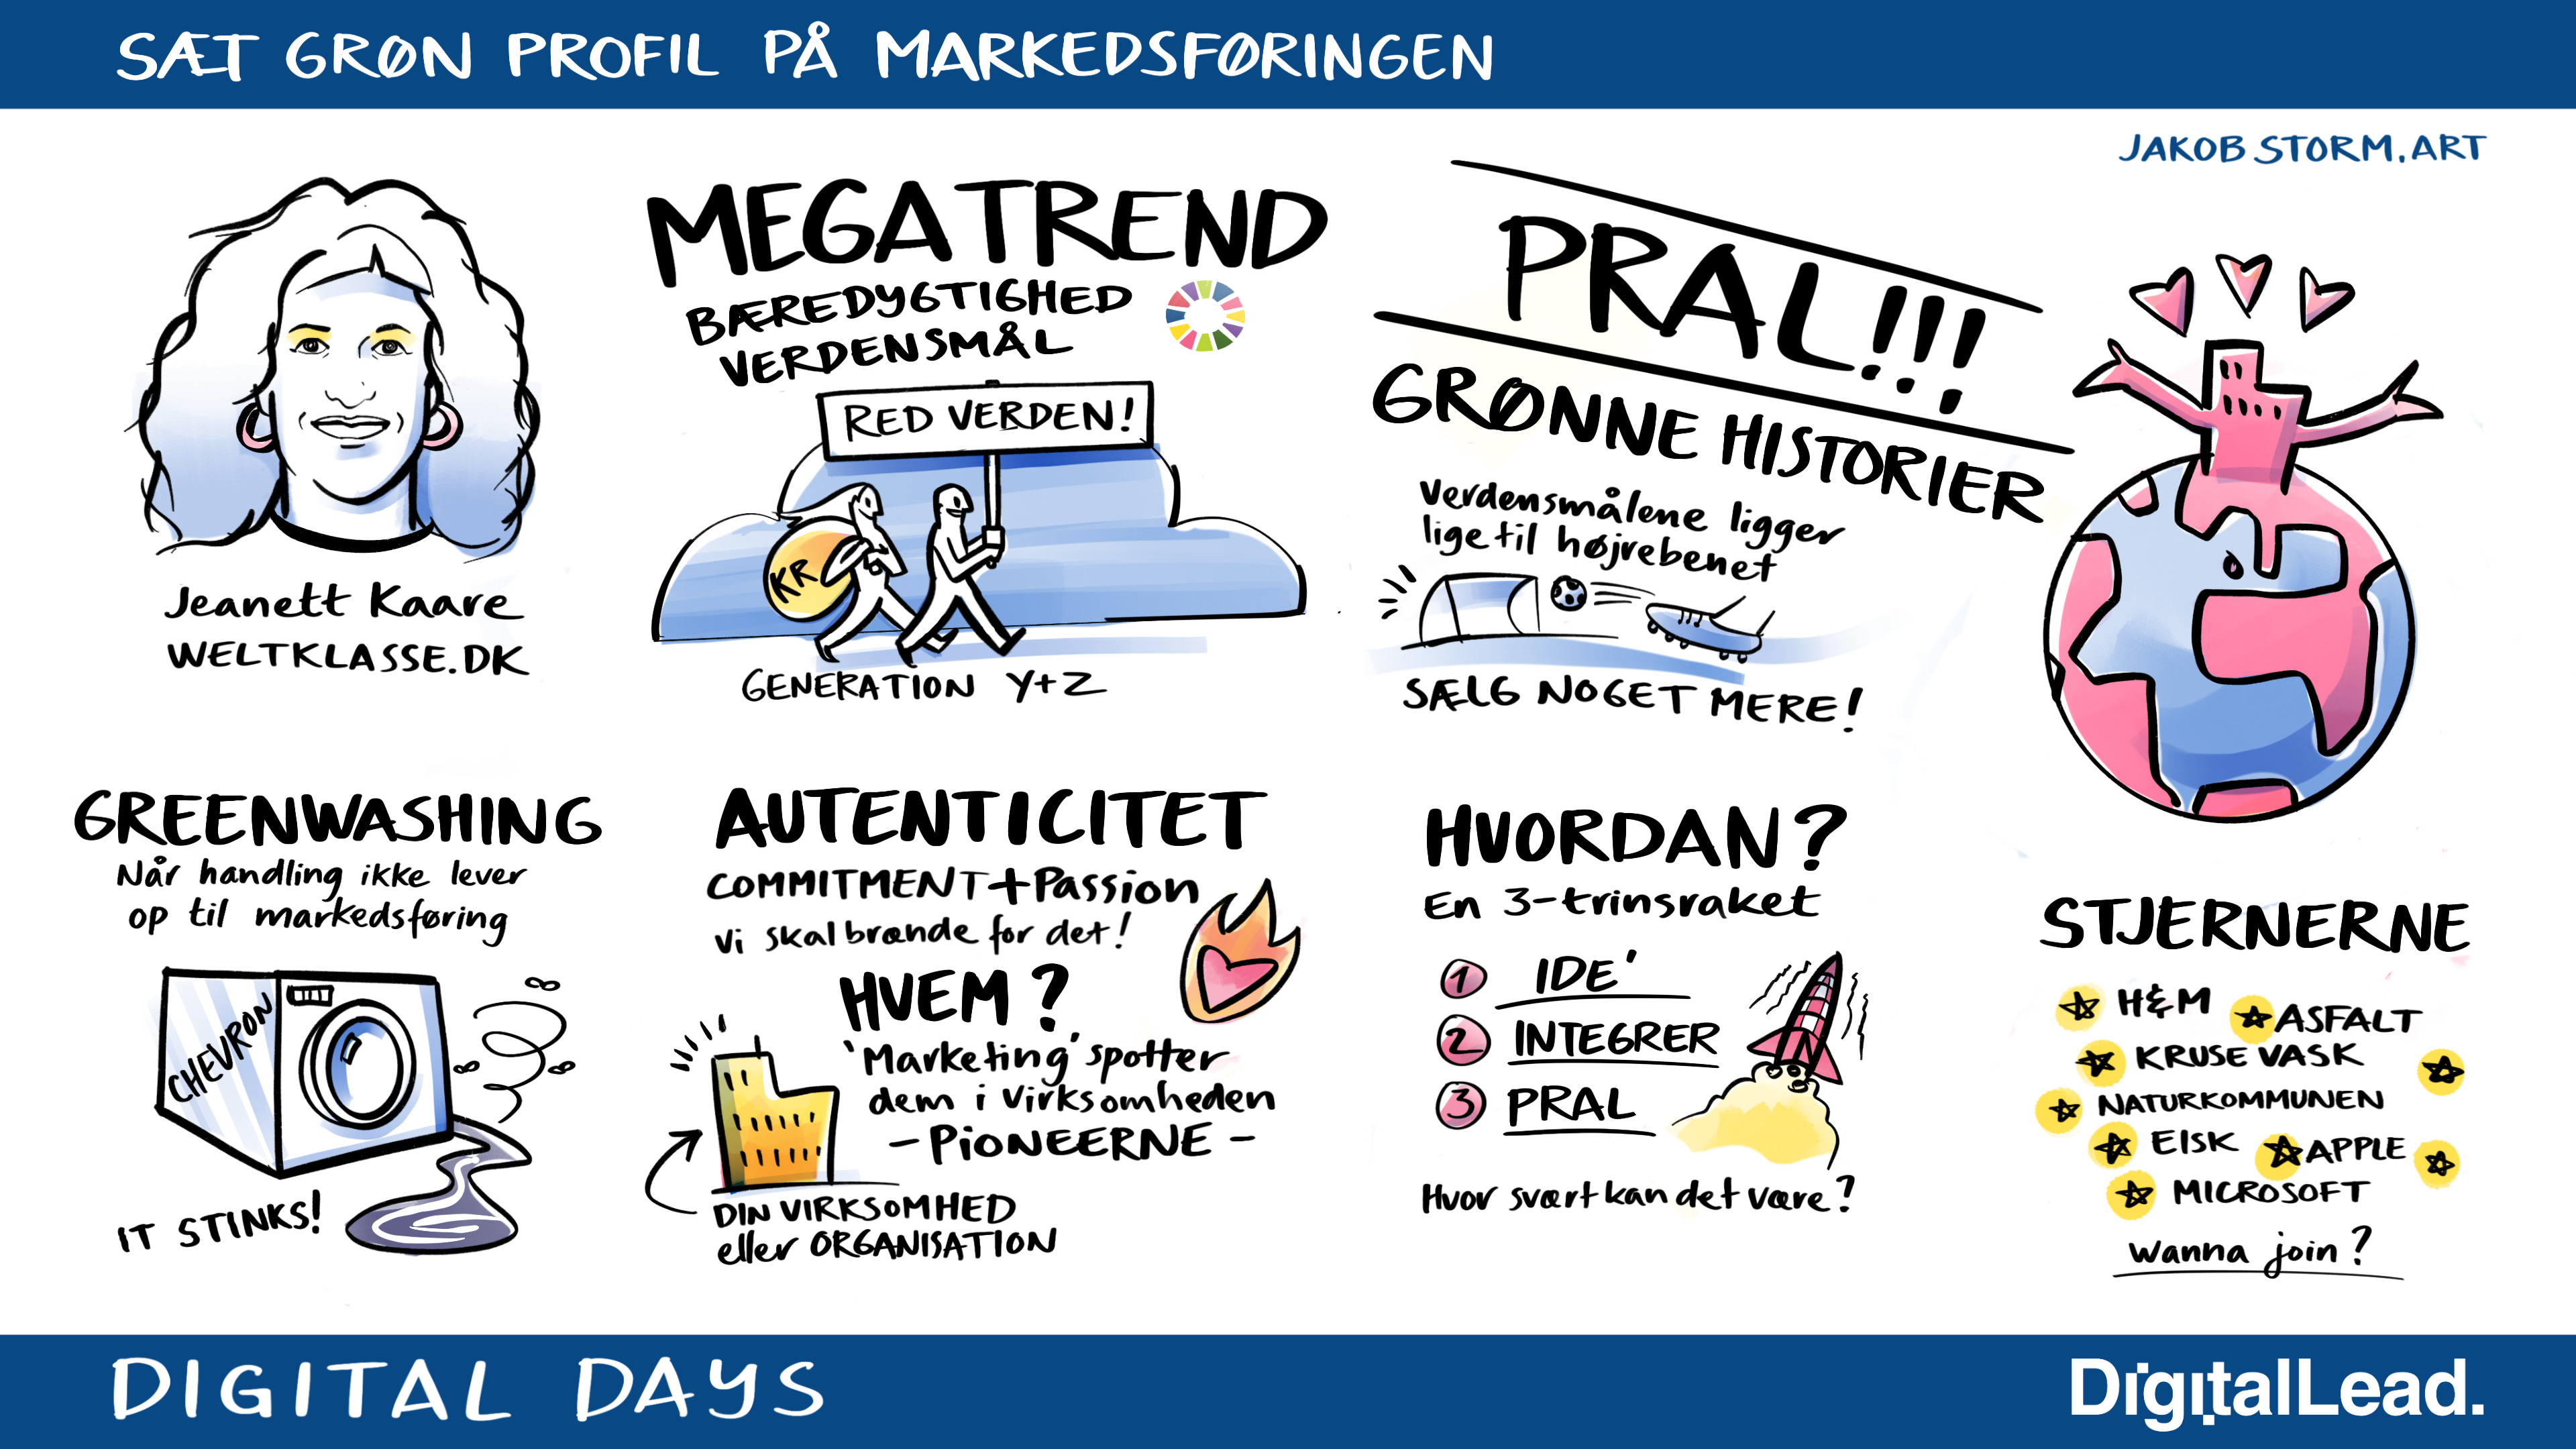 SÆT GRØN PROFIL PÅ MARKEDSFØRINGEN
JAKOB STORM.ART
Jeanett Kaare
WELTKLASSE.DK
MEGATREND
BÆREDYGTIGHED
VERDENSMÅL
RED VERDEN!
KR
GENERATION Y+Z
PRAL!!!
GRØNNE HISTORIER
Verdensmålene ligger
lige til højrebenet
SÆLG NOGET MERE!
GREENWASHING
Når handling ikke lever
op til markedsføring
CHEVRON
IT STINKS!
AUTENTICITET
COMMITMENT+Passion
Vi skal brænde for det!
HVEM?
'Marketing' spotter
dem i virksomheden
- PIONEERNE -
DIN VIRKSOMHED
eller ORGANISATION
HVORDAN?
En 3-trinsraket
1 IDE'
2 INTEGRER
3 PRAL
Hvor svært kan det være?
STJERNERNE
H&M
ASFALT
KRUSE VASK
NATURKOMMUNEN
EISK
APPLE
MICROSOFT
Wanna join?
DIGITAL DAYS
DigitalLead.